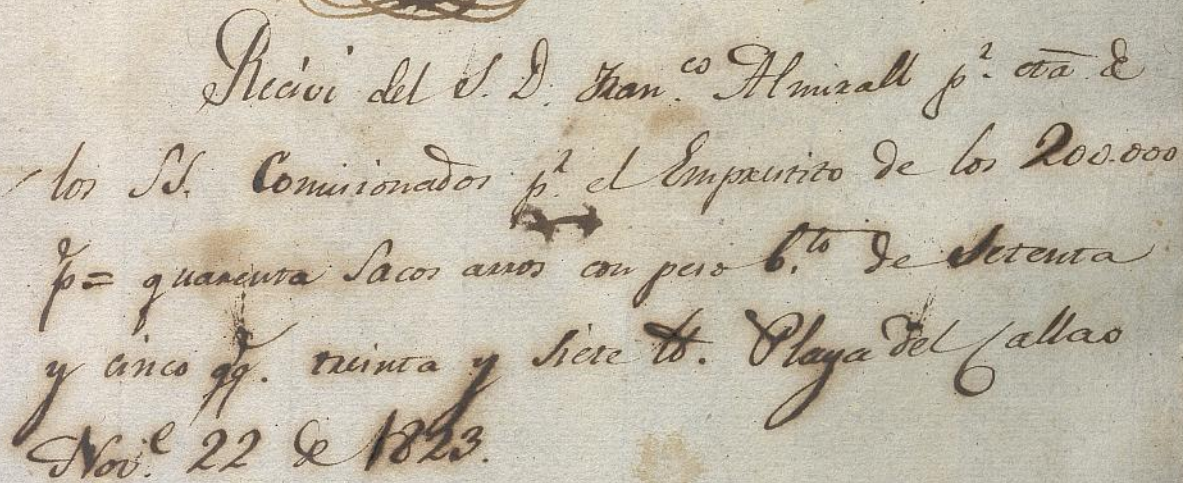 Recivi del S. D. Fran.co Almirall pr. cta de
los SS. Comisionados pr. el Emprestito de los 200.000
p= quarenta Sacos arros con peso b.to de Setenta
y cinco qq. treinta y siete lb. Playa del Callao
Nov.e 22 de 1823.